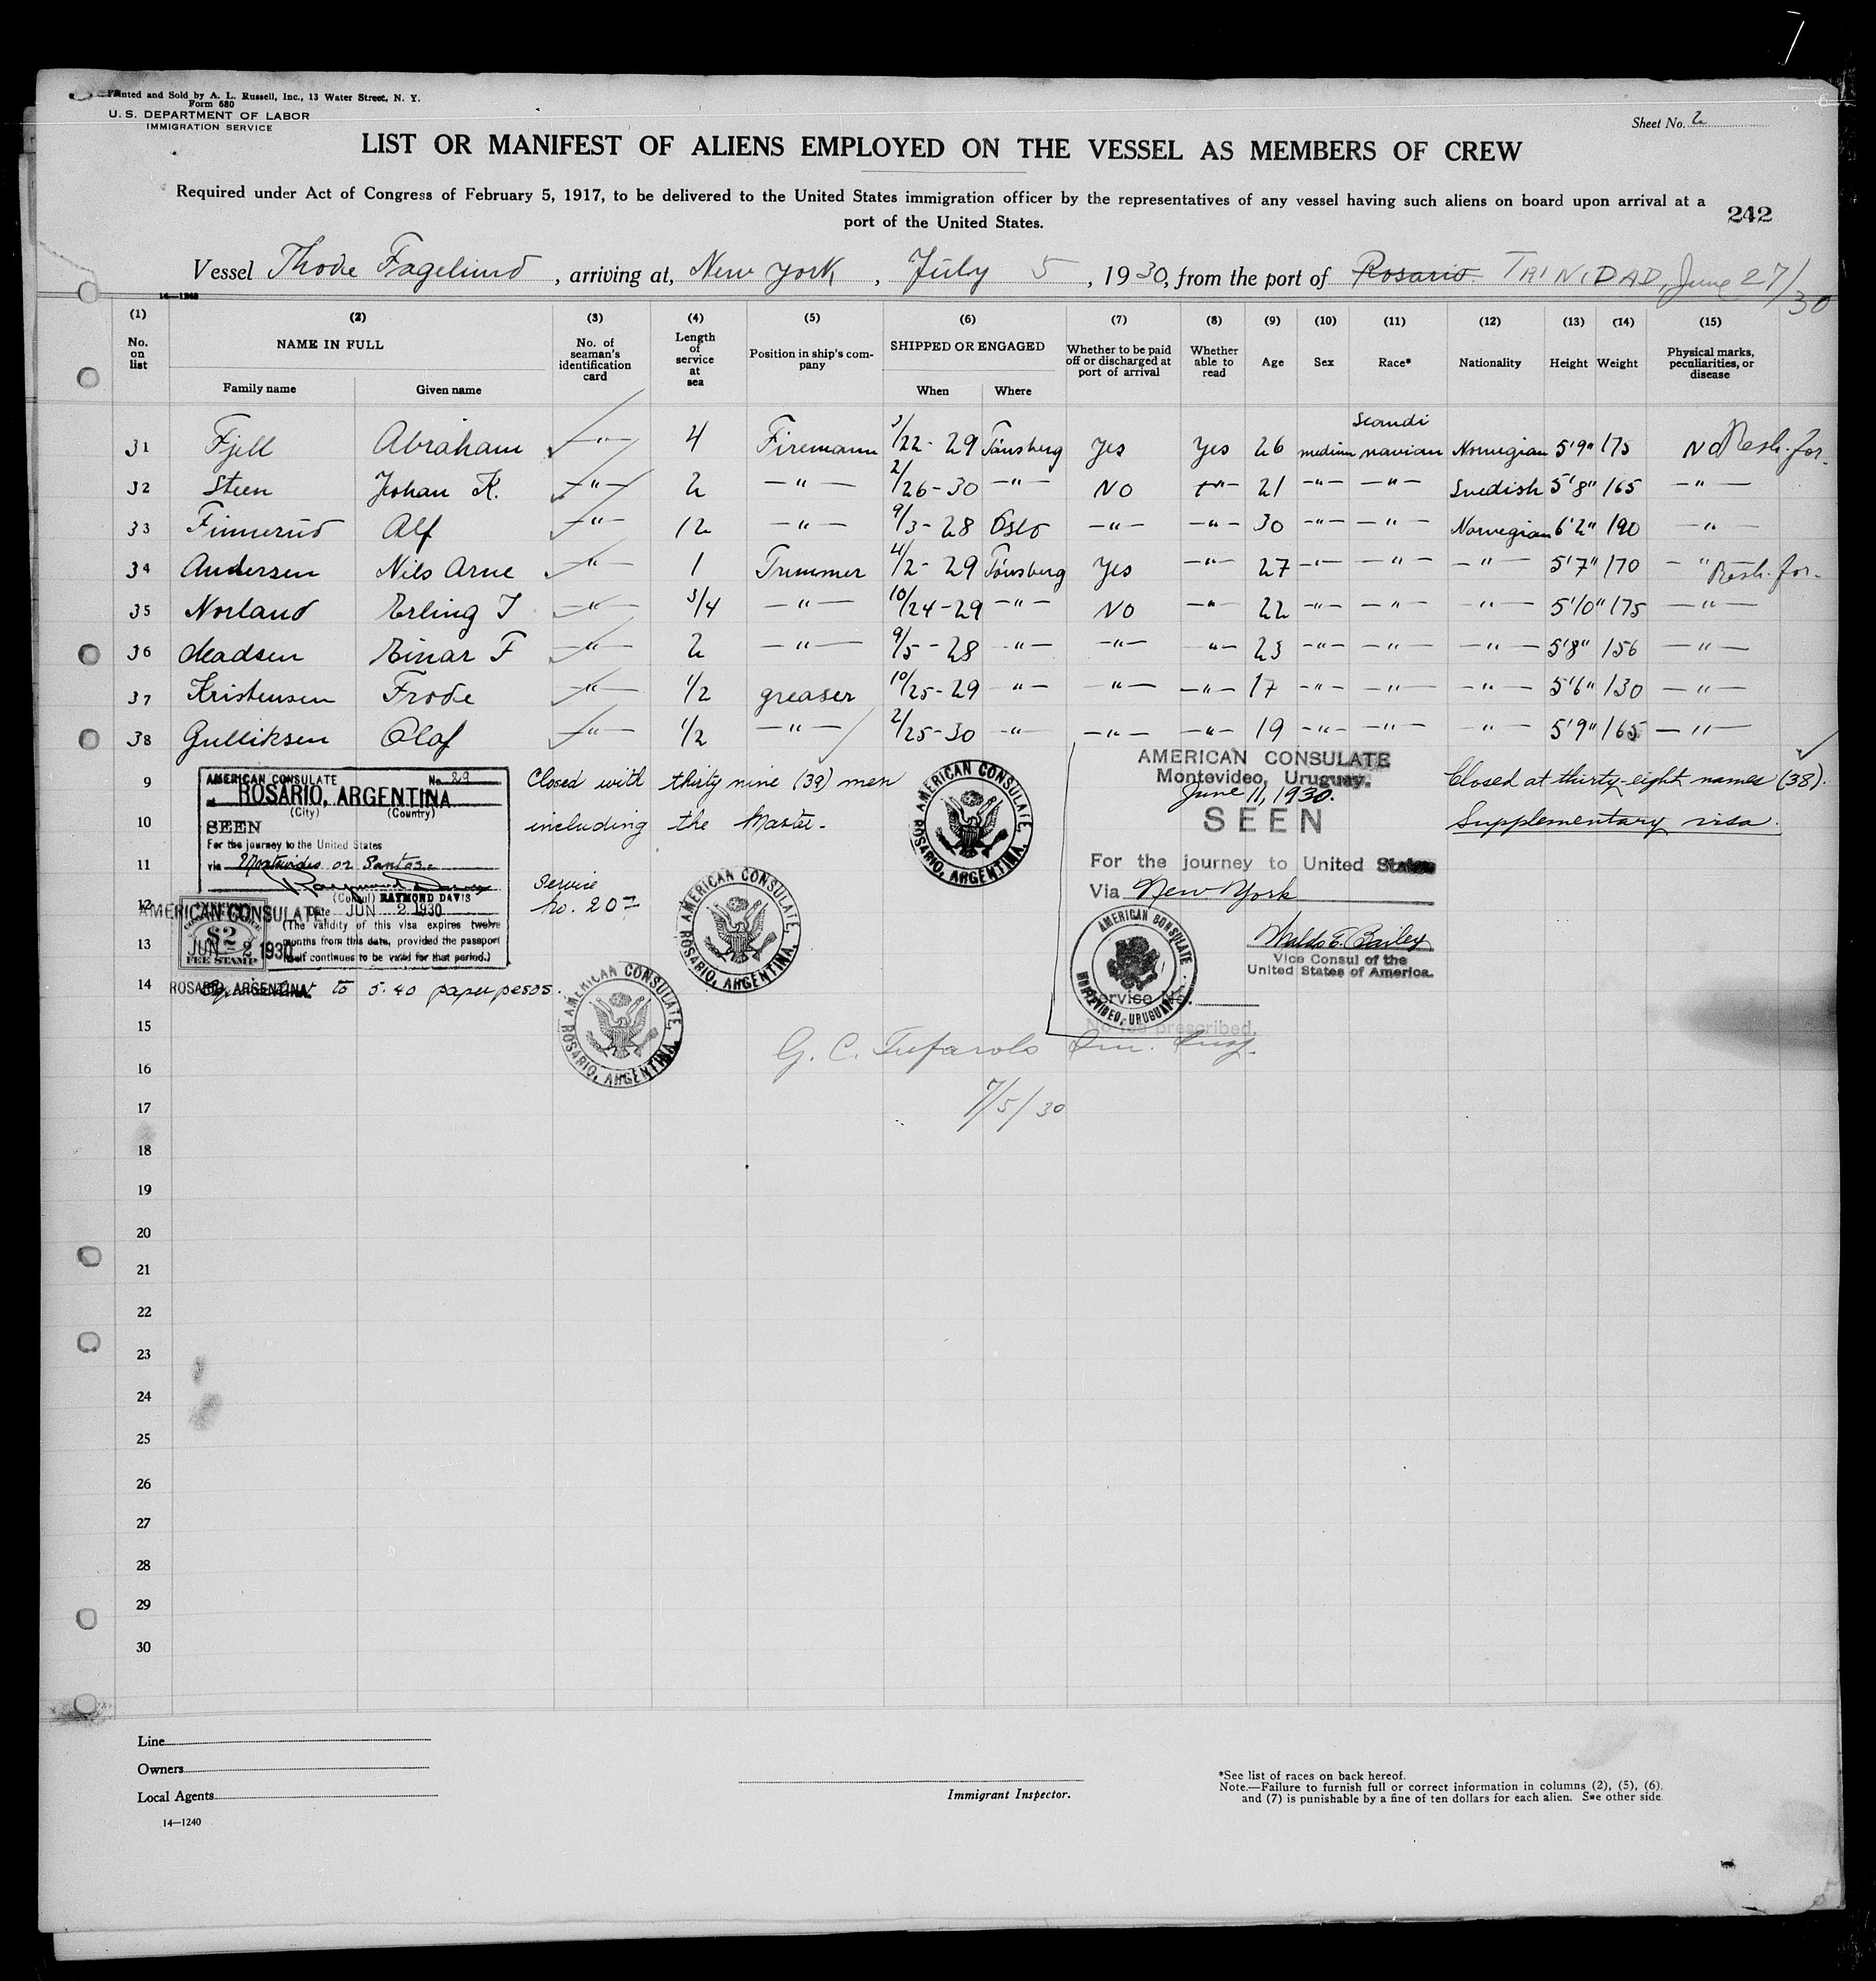 Printed and Sold by A. L. Russell, Inc., 13 Water Street, N. Y.
Form 680
U. S. DEPARTMENT OF LABOR
IMMIGRATION SERVICE
Sheet No. 2
LIST OR MANIFEST OF ALIENS EMPLOYED ON THE VESSEL AS MEMBERS OF CREW
Required under Act of Congress of February 5, 1917, to be delivered to the United States immigration officer by the representatives of any vessel having such aliens on board upon arrival at a
port of the United States.
242
Vessel Thode Fagelund, arriving at, New York, July 5, 1930, from the port of Rosario TRINIDAD, June 27/30
(1) (2) (3) (4) (5) (6) (7) (8) (9) (10) (11) (12) (13) (14) (15)
No. on list NAME IN FULL No. of seaman's identification card Length of service at sea Position in ship's company SHIPPED OR ENGAGED Whether to be paid off or discharged at port of arrival Whether able to read Age Sex Race* Nationality Height Weight Physical marks, peculiarities, or disease
Family name Given name When Where
31 Fjell Abraham -"- 4 Firemann 3/22-29 Tönsberg Yes Yes 26 medium Scandinavian Norwegian 5'9" 175 No Resh. for.
32 Steen Johan K. -"- 2 -"- 2/26-30 -"- No -"- 21 -"- -"- Swedish 5'8" 165 -"-
33 Finnerud Alf -"- 12 -"- 9/3-28 Oslo -"- -"- 30 -"- -"- Norwegian 6'2" 190 -"-
34 Andersen Nils Arne -"- 1 Trimmer 4/2-29 Tönsberg Yes -"- 27 -"- -"- -"- 5'7" 170 -"- Resh. for.
35 Norland Erling T -"- 3/4 -"- 10/24-29 -"- No -"- 22 -"- -"- -"- 5'10" 175 -"-
36 Madsen Einar F -"- 2 -"- 9/5-28 -"- -"- -"- 23 -"- -"- -"- 5'8" 156 -"-
37 Kristensen Frode -"- 1/2 greaser 10/25-29 -"- -"- -"- 17 -"- -"- -"- 5'6" 130 -"-
38 Gulliksen Olaf -"- 1/2 -"- 2/25-30 -"- -"- -"- 19 -"- -"- -"- 5'9" 165 -"-
9
10
11
12
13
14
15
16
17
18
19
20
21
22
23
24
25
26
27
28
29
30
AMERICAN CONSULATE No. 29
at ROSARIO, ARGENTINA
(City) (Country)
SEEN
For the journey to the United States
via Montevideo or Santos
(Consul) RAYMOND DAVIS
Date JUN 2 1930
(The validity of this visa expires twelve
months from this date, provided the passport
itself continues to be valid for that period.)
AMERICAN CONSULATE
$2
JUN 2 1930
FEE STAMP
ROSARIO, ARGENTINA
to 5.40 paper pesos.
Closed with thirty nine (39) men
including the Master.
Service
No. 207
AMERICAN CONSULATE, ROSARIO, ARGENTINA.
AMERICAN CONSULATE, ROSARIO, ARGENTINA.
AMERICAN CONSULATE, ROSARIO, ARGENTINA.
AMERICAN CONSULATE
Montevideo, Uruguay.
June 11, 1930.
SEEN
For the journey to United States
Via New York
Waldo E. Bailey
Vice Consul of the
United States of America.
AMERICAN CONSULATE MONTEVIDEO, URUGUAY.
Service No.
No fee prescribed.
Closed at thirty-eight names (38).
Supplementary visa.
7/5/30
Line
Owners
Local Agents
14—1240
Immigrant Inspector.
*See list of races on back hereof.
Note.—Failure to furnish full or correct information in columns (2), (5), (6),
and (7) is punishable by a fine of ten dollars for each alien. See other side.